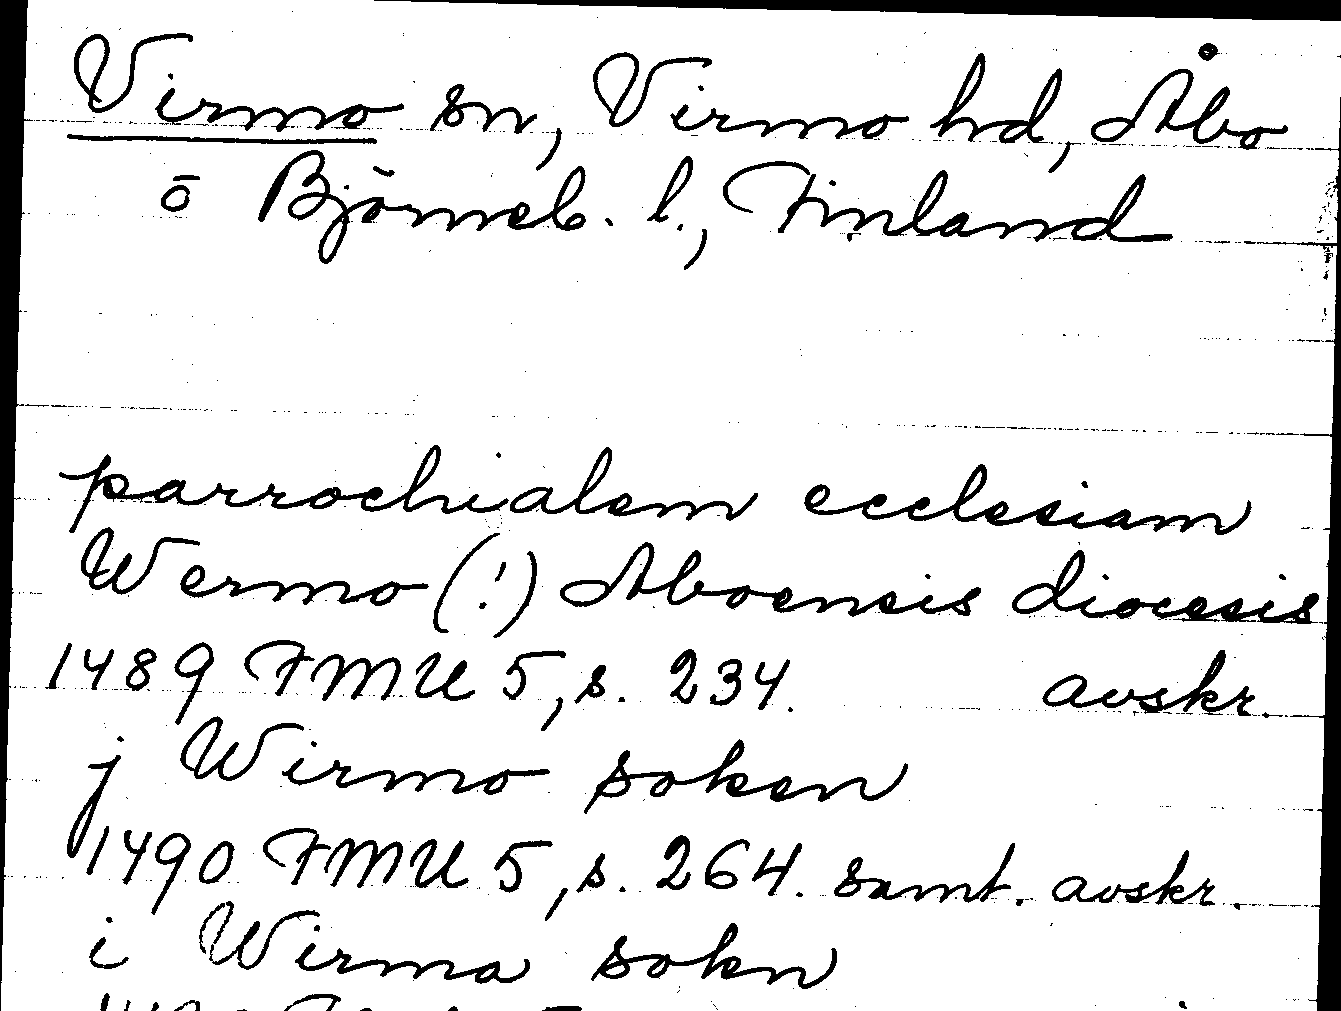 Virmo sn, Virmo hd, Åbo
o Björneb. l., Finland
parrochialem ecclesiam
Wermo (!) Aboensis diocesis
1489 FMU 5, s. 234. avskr.
j Wirmo soken
1490 FMU 5, s. 264. samt. avskr.
i Wirma sokn